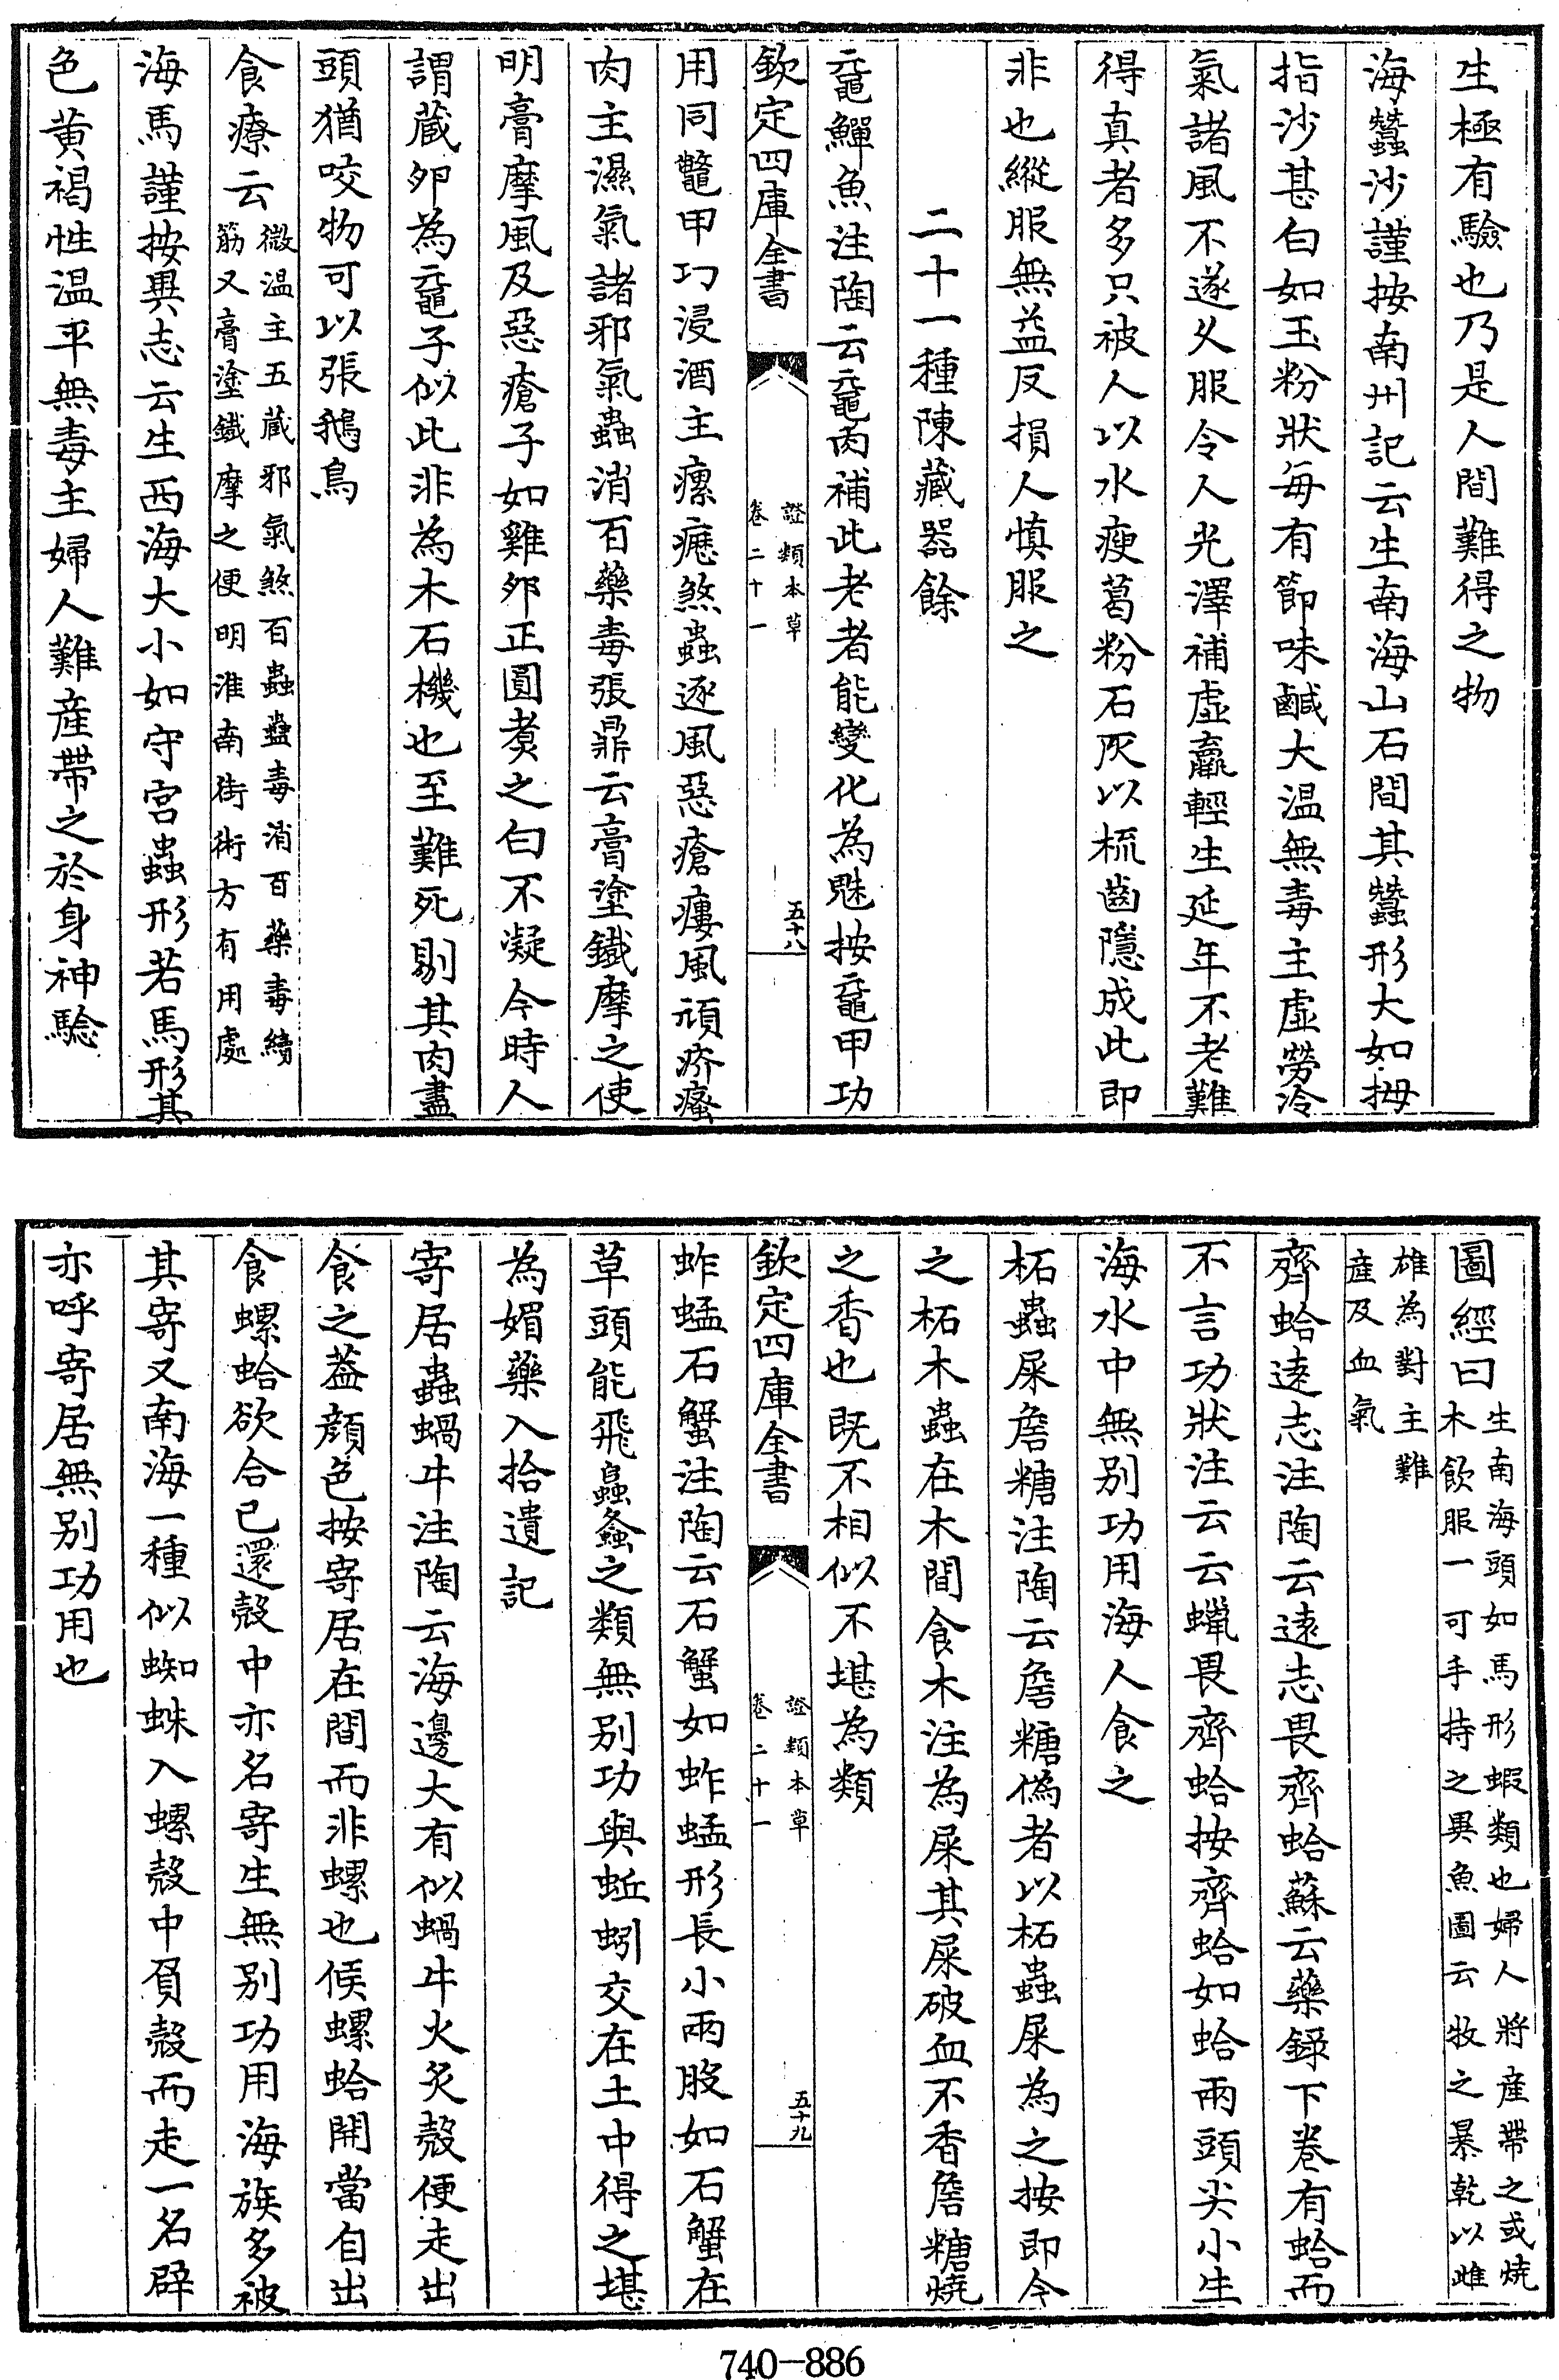 生極有驗也乃是人間難得之物
海蠶沙謹按南州記云生南海山石間其蠶形大如拇
指沙甚白如玉粉狀每有節味鹹大温無毒主虛勞冷
氣諸風不遂久服令人光澤補虛羸輕生延年不老難
得真者多只被人以水瘦葛粉石灰以梳齒隱成此即
非也縱服無益反損人慎服之
二十一種陳藏器餘
黿鱓魚注陶云黿肉補此老者能變化為魅按黿甲功
欽定四庫全書
證類本草
卷二十一
五十八
用同鼈甲㓛浸酒主瘰癧煞蟲逐風惡瘡瘻風頑疥瘙
肉主濕氣諸邪氣蟲消百藥毒張鼎云膏塗鐵摩之使
明膏摩風及惡瘡子如雞夘正圓煑之白不凝今時人
謂蔵夘為黿子似此非為木石機也至難死剔其肉盡
頭猶咬物可以張鵝鳥
食療云
微温主五蔵邪氣煞百蟲蠱毒消百藥毒續
筋又膏塗鐵摩之便明淮南街術方有用處
海馬謹按異志云生西海大小如守宫蟲形若馬形其
色黄褐性温平無毒主婦人難産帶之於身神驗
圖經曰
生南海頭如馬形蝦類也婦人將産帶之或燒
木飲服一可手持之異魚圖云牧之暴乾以雌
雄為對主難
産及血氣
齊蛤遠志注陶云遠志畏齊蛤蘇云藥録下卷有蛤而
不言功狀注云云蠟畏齊蛤按齊蛤如蛤兩頭尖小生
海水中無别功用海人食之
柘蟲屎詹糖注陶云詹糖偽者以柘蟲屎為之按即今
之柘木蟲在木間食木注為屎其屎破血不香詹糖燒
之香也既不相似不堪為類
欽定四庫全書
證類本草
卷二十一
五十九
蚱蜢石蟹注陶云石蟹如蚱蜢形長小兩股如石蟹在
草頭能飛蟲螽之類無别功與蚯蚓交在土中得之堪
為媚藥入拾遺記
寄居蟲蝸牛注陶云海邊大有似蝸牛火炙殼便走出
食之益顔色按寄居在間而非螺也候螺蛤開當自出
食螺蛤欲合已還殼中亦名寄生無别功用海族多被
其寄又南海一種似蜘蛛入螺殼中負殼而走一名辟
亦呼寄居無别功用也
740-886